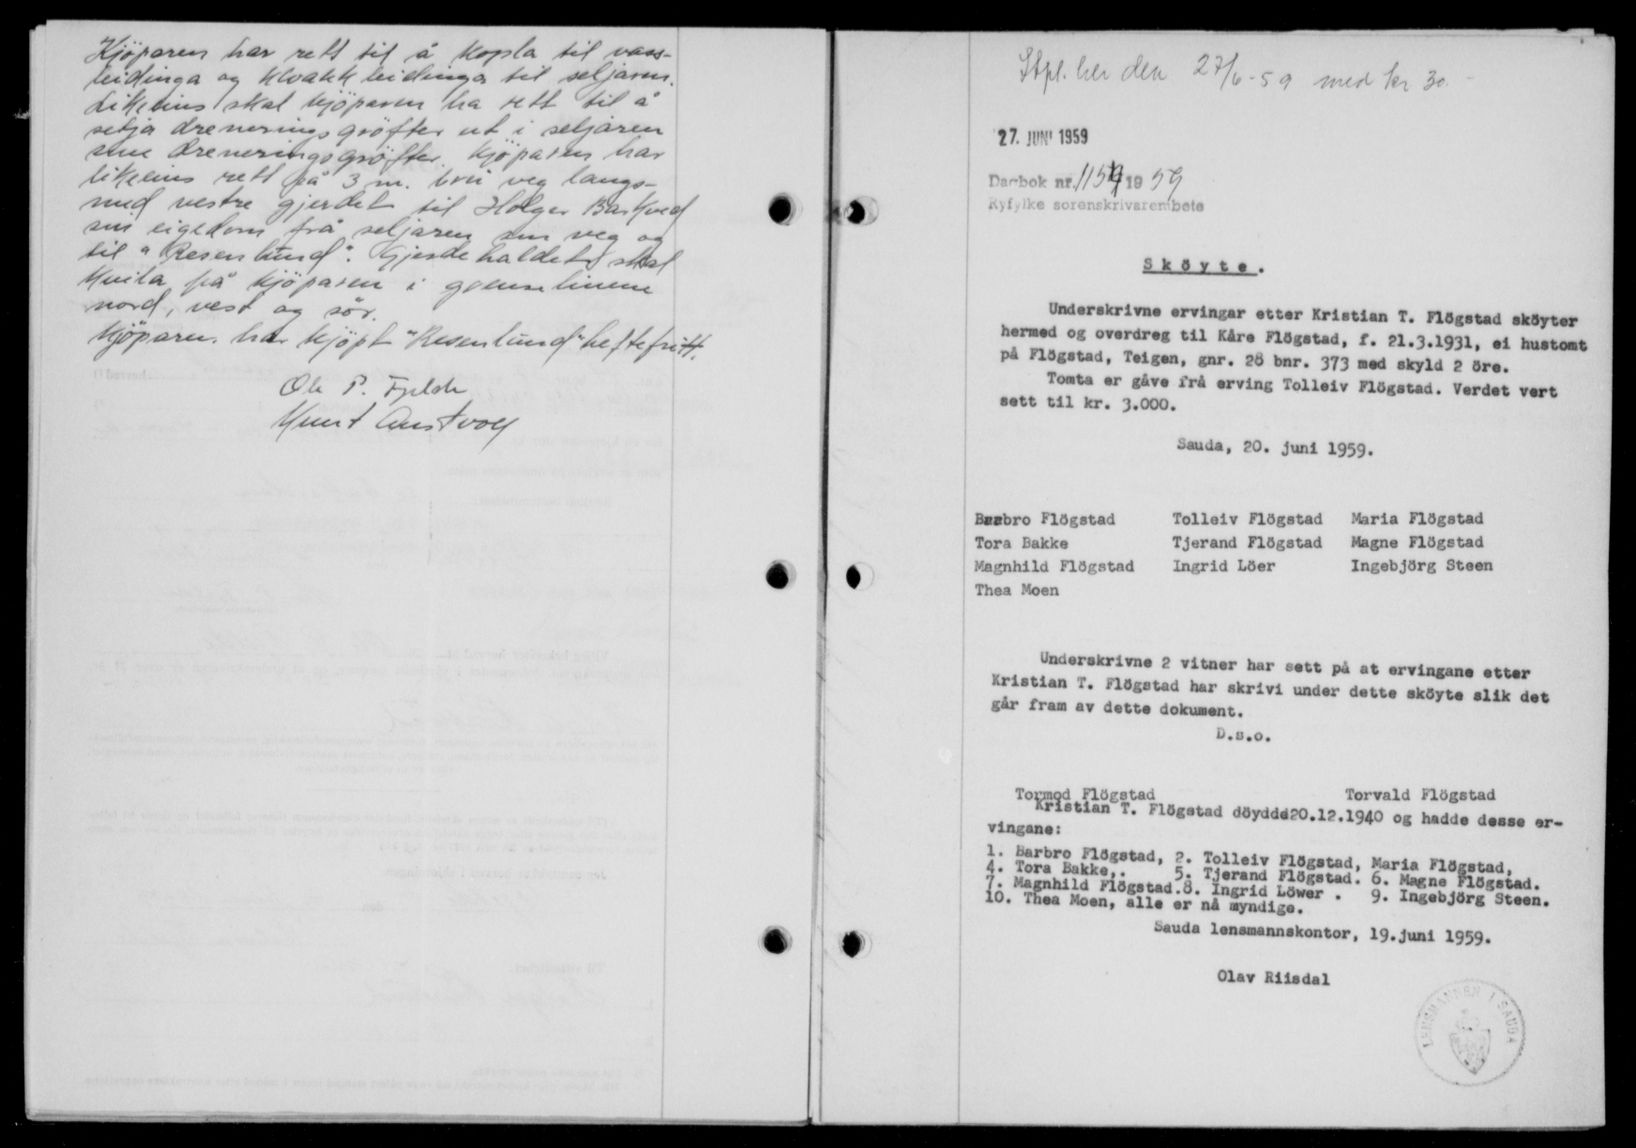 Kjöparen har rett til å kopla til vass-
leidinga og kloakkleidinga til seljaren.
Likeeins skal kjöparen ha rett til å
setja dreneringsgröfter ut i seljaren
sine dreneringsgröfter. Kjöparen har
likeeins rett på 3 m. brei veg langs-
med vestre gjerdet til Holger Barkved
sin eigedom frå seljaren sin veg og
til "Resenlund". Gjerdehaldet skal
kvila på kjöparen i grenselinene
nord, vest og sör.
Kjöparen har kjöpt "Resenlund" heftefritt.
Ole P.
Knut Austvoll
Stpl. her den 27/6-59 med kr 30.-
27. JUNI 1959
Dagbok nr. 1159 1959
Ryfylke sorenskrivarembete
Sköyte.
Underskrivne ervingar etter Kristian T. Flögstad sköyter
hermed og overdreg til Kåre Flögstad, f. 21.3.1931, ei hustomt
på Flögstad, Teigen, gnr. 28 bnr. 373 med skyld 2 öre.
Tomta er gåve frå erving Tolleiv Flögstad. Verdet vert
sett til kr. 3.000.
Sauda, 20. juni 1959.
Barbro Flögstad Tolleiv Flögstad Maria Flögstad
Tora Bakke Tjerand Flögstad Magne Flögstad
Magnhild Flögstad Ingrid Löer Ingebjörg Steen
Thea Moen
Underskrivne 2 vitner har sett på at ervingane etter
Kristian T. Flögstad har skrivi under dette sköyte slik det
går fram av dette dokument.
D.s.o.
Tormod Flögstad Torvald Flögstad
Kristian T. Flögstad döyddd20.12.1940 og hadde desse er-
vingane:
1. Barbro Flögstad, 2. Tolleiv Flögstad, Maria Flögstad,
4. Tora Bakke,. 5. Tjerand Flögstad. 6. Magne Flögstad.
7. Magnhild Flögstad.8. Ingrid Löwer . 9. Ingebjörg Steen.
10. Thea Moen, alle er nå myndige.
Sauda lensmannskontor, 19.juni 1959.
Olav Riisdal
LENSMANNEN I SAUDA